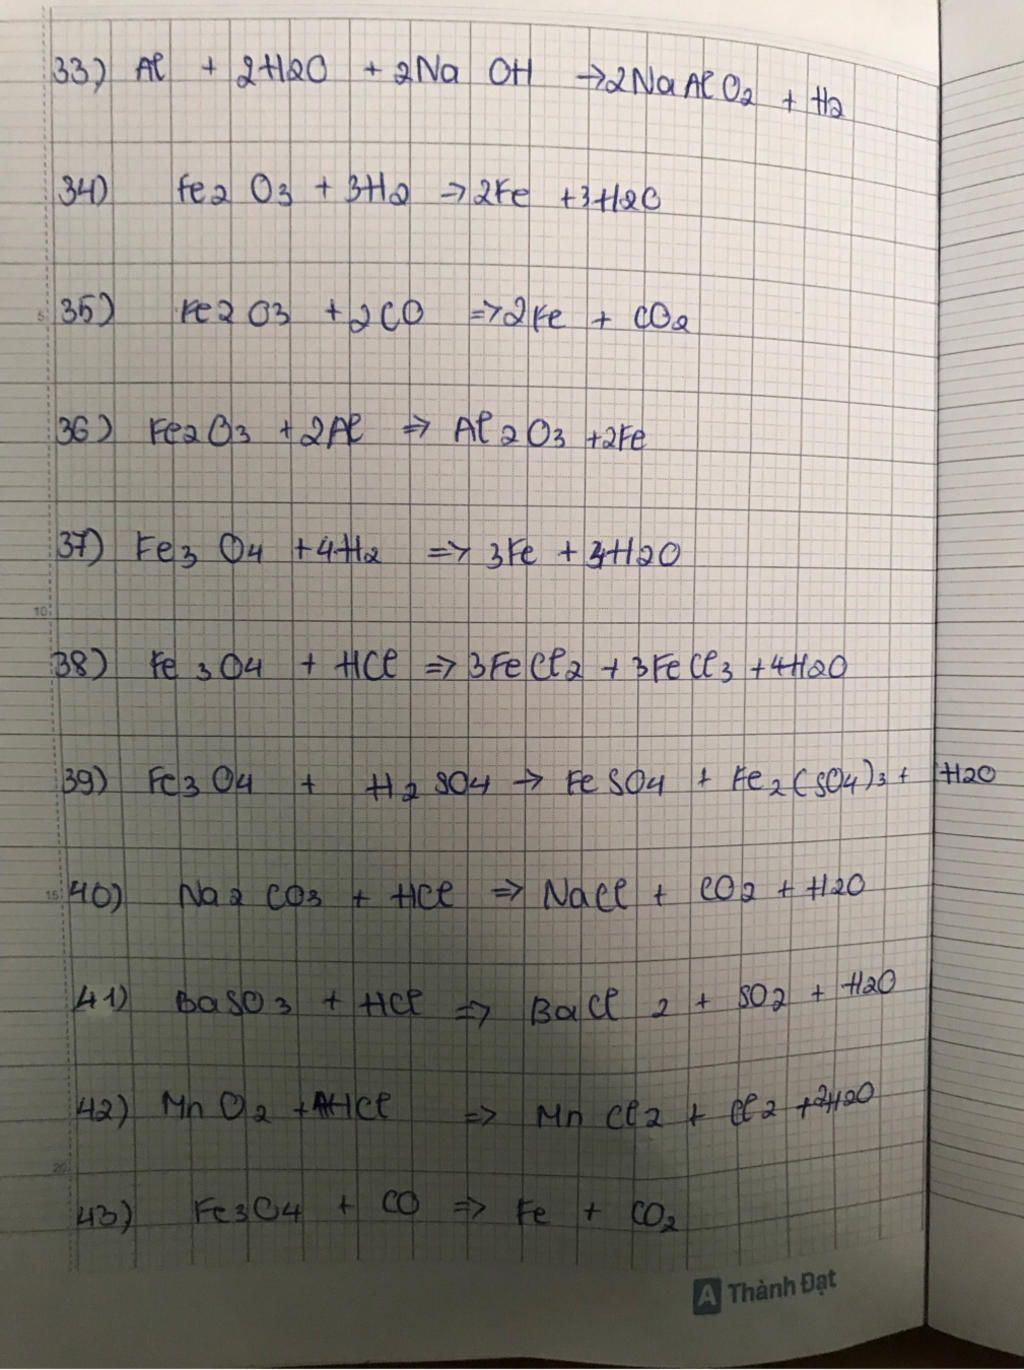 33) Al + 2H2O + 2Na OH → 2NaAlO2 + H2
34) Fe2 O3 + 3H2 => 2Fe + 3H2O
5 35) Fe2O3 + 2CO => 2Fe + CO2
36) Fe2O3 + 2Al => Al2O3 + 2Fe
37) Fe3 O4 + 4H2 => 3Fe + 4H2O
10
38) Fe3O4 + HCl => 3FeCl2 + 3FeCl3 + 4H2O
39) Fe3O4 + H2SO4 → FeSO4 + Fe2(SO4)3 + H2O
15 40) Na2CO3 + HCl => NaCl + CO2 + H2O
41) BaSO3 + HCl => BaCl2 + SO2 + H2O
42) MnO2 + 4HCl => MnCl2 + Cl2 + 2H2O
20
43) Fe3O4 + CO => Fe + CO2
A Thành Đạt